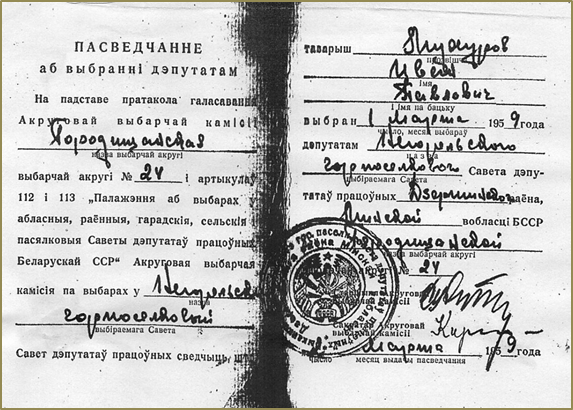 ПАСВЕДЧАННЕ
аб выбранні дэпутатам
На падставе пратакола галасавання
Акруговай выбарчай камісіі
Городищанская
назва выбарчай акругі
выбарчай акругі № 24 і артыкулаў
112 і 113 „Палажэння аб выбарах у
абласныя, раённыя, гарадскія, сельскія
пасялковыя Саветы дэпутатаў працоўных
Беларускай ССР“ Акруговая выбарчая
камісія па выбарах у Негорельский
назва
горпоселковый
выбіраемага Савета
Савет дэпутатаў працоўных сведчыць, што
таварыш
прозвішча
Павлович
імя і імя па бацьку
выбран 1 марта 1959 года
число, месяц выбараў
дэпутатам Негорельского
назва
горпоселкового Савета дэпу-
выбіраемага Савета
татаў працоўных Дзержинского раёна,
Минской вобласці БССР
Городищанской
выбарчай акругі № 24
Сакратар Акруговай
выбарчай камісіі
марта 1959 года
число месяц выдачы пасведчання